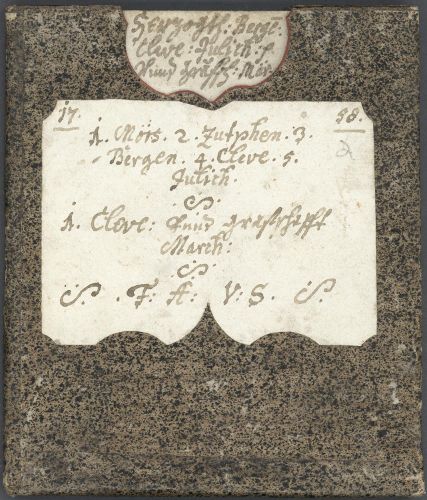 Herzogth. Berge.
Cleve: Julich. p
Vnnd Graffs: Mör.
17. 58.
1. Mörs. 2. Zutphen. 3.
Bergen. 4. Cleve. 5.
Julich.
S.
1. Cleve: Vnnd Graffschafft
March:
S.
S. F. A: V. S. S.
2